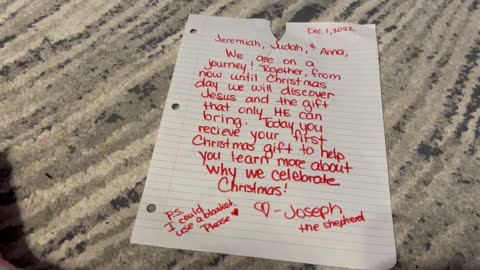 Dec. 1, 2022
Jeremiah, Judah, & Anna,
We are on a
journey! Together, from
now until Christmas
day we will discover
Jesus and the gift
that only HE can
bring. Today you
recieve your first
Christmas gift to help
you learn more about
why we celebrate
Christmas!
♡-Joseph
the shepherd
P.S.
I could
use a blanket.
Please ♥